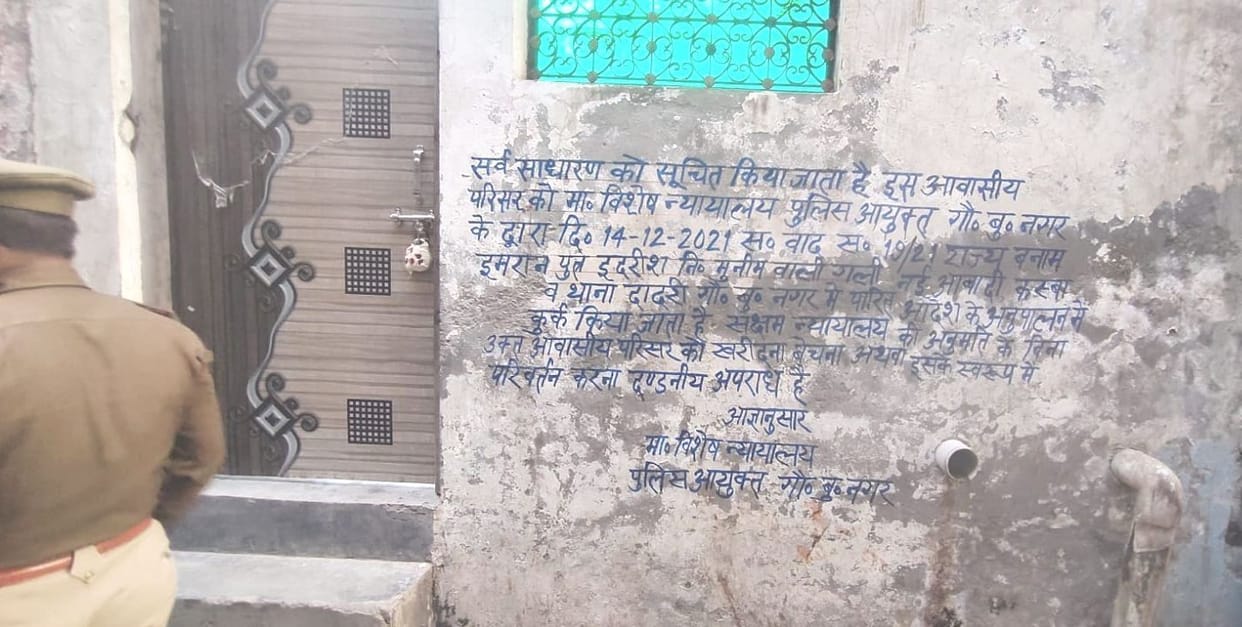 सर्व साधारण को सूचित किया जाता है इस आवासीय
परिसर को मा० विशेष न्यायालय पुलिस आयुक्त गौ० बु० नगर
के द्वारा दि० 14-12-2021 स० वाद स० 10/21 राज्य बनाम
इमरान पुत्र इदरीश नि० मुनीम वाली गली नई आबादी कस्बा
व थाना दादरी गौ० बु० नगर मे पारित आदेश के अनुपालन में
कुर्क किया जाता है सक्षम न्यायालय की अनुमति के बिना
उक्त आवासीय परिसर को खरीदना बेचना अथवा इसके स्वरूप मे
परिवर्तन करना दण्डनीय अपराध है
आज्ञानुसार
मा० विशेष न्यायालय
पुलिस आयुक्त गौ० बु० नगर